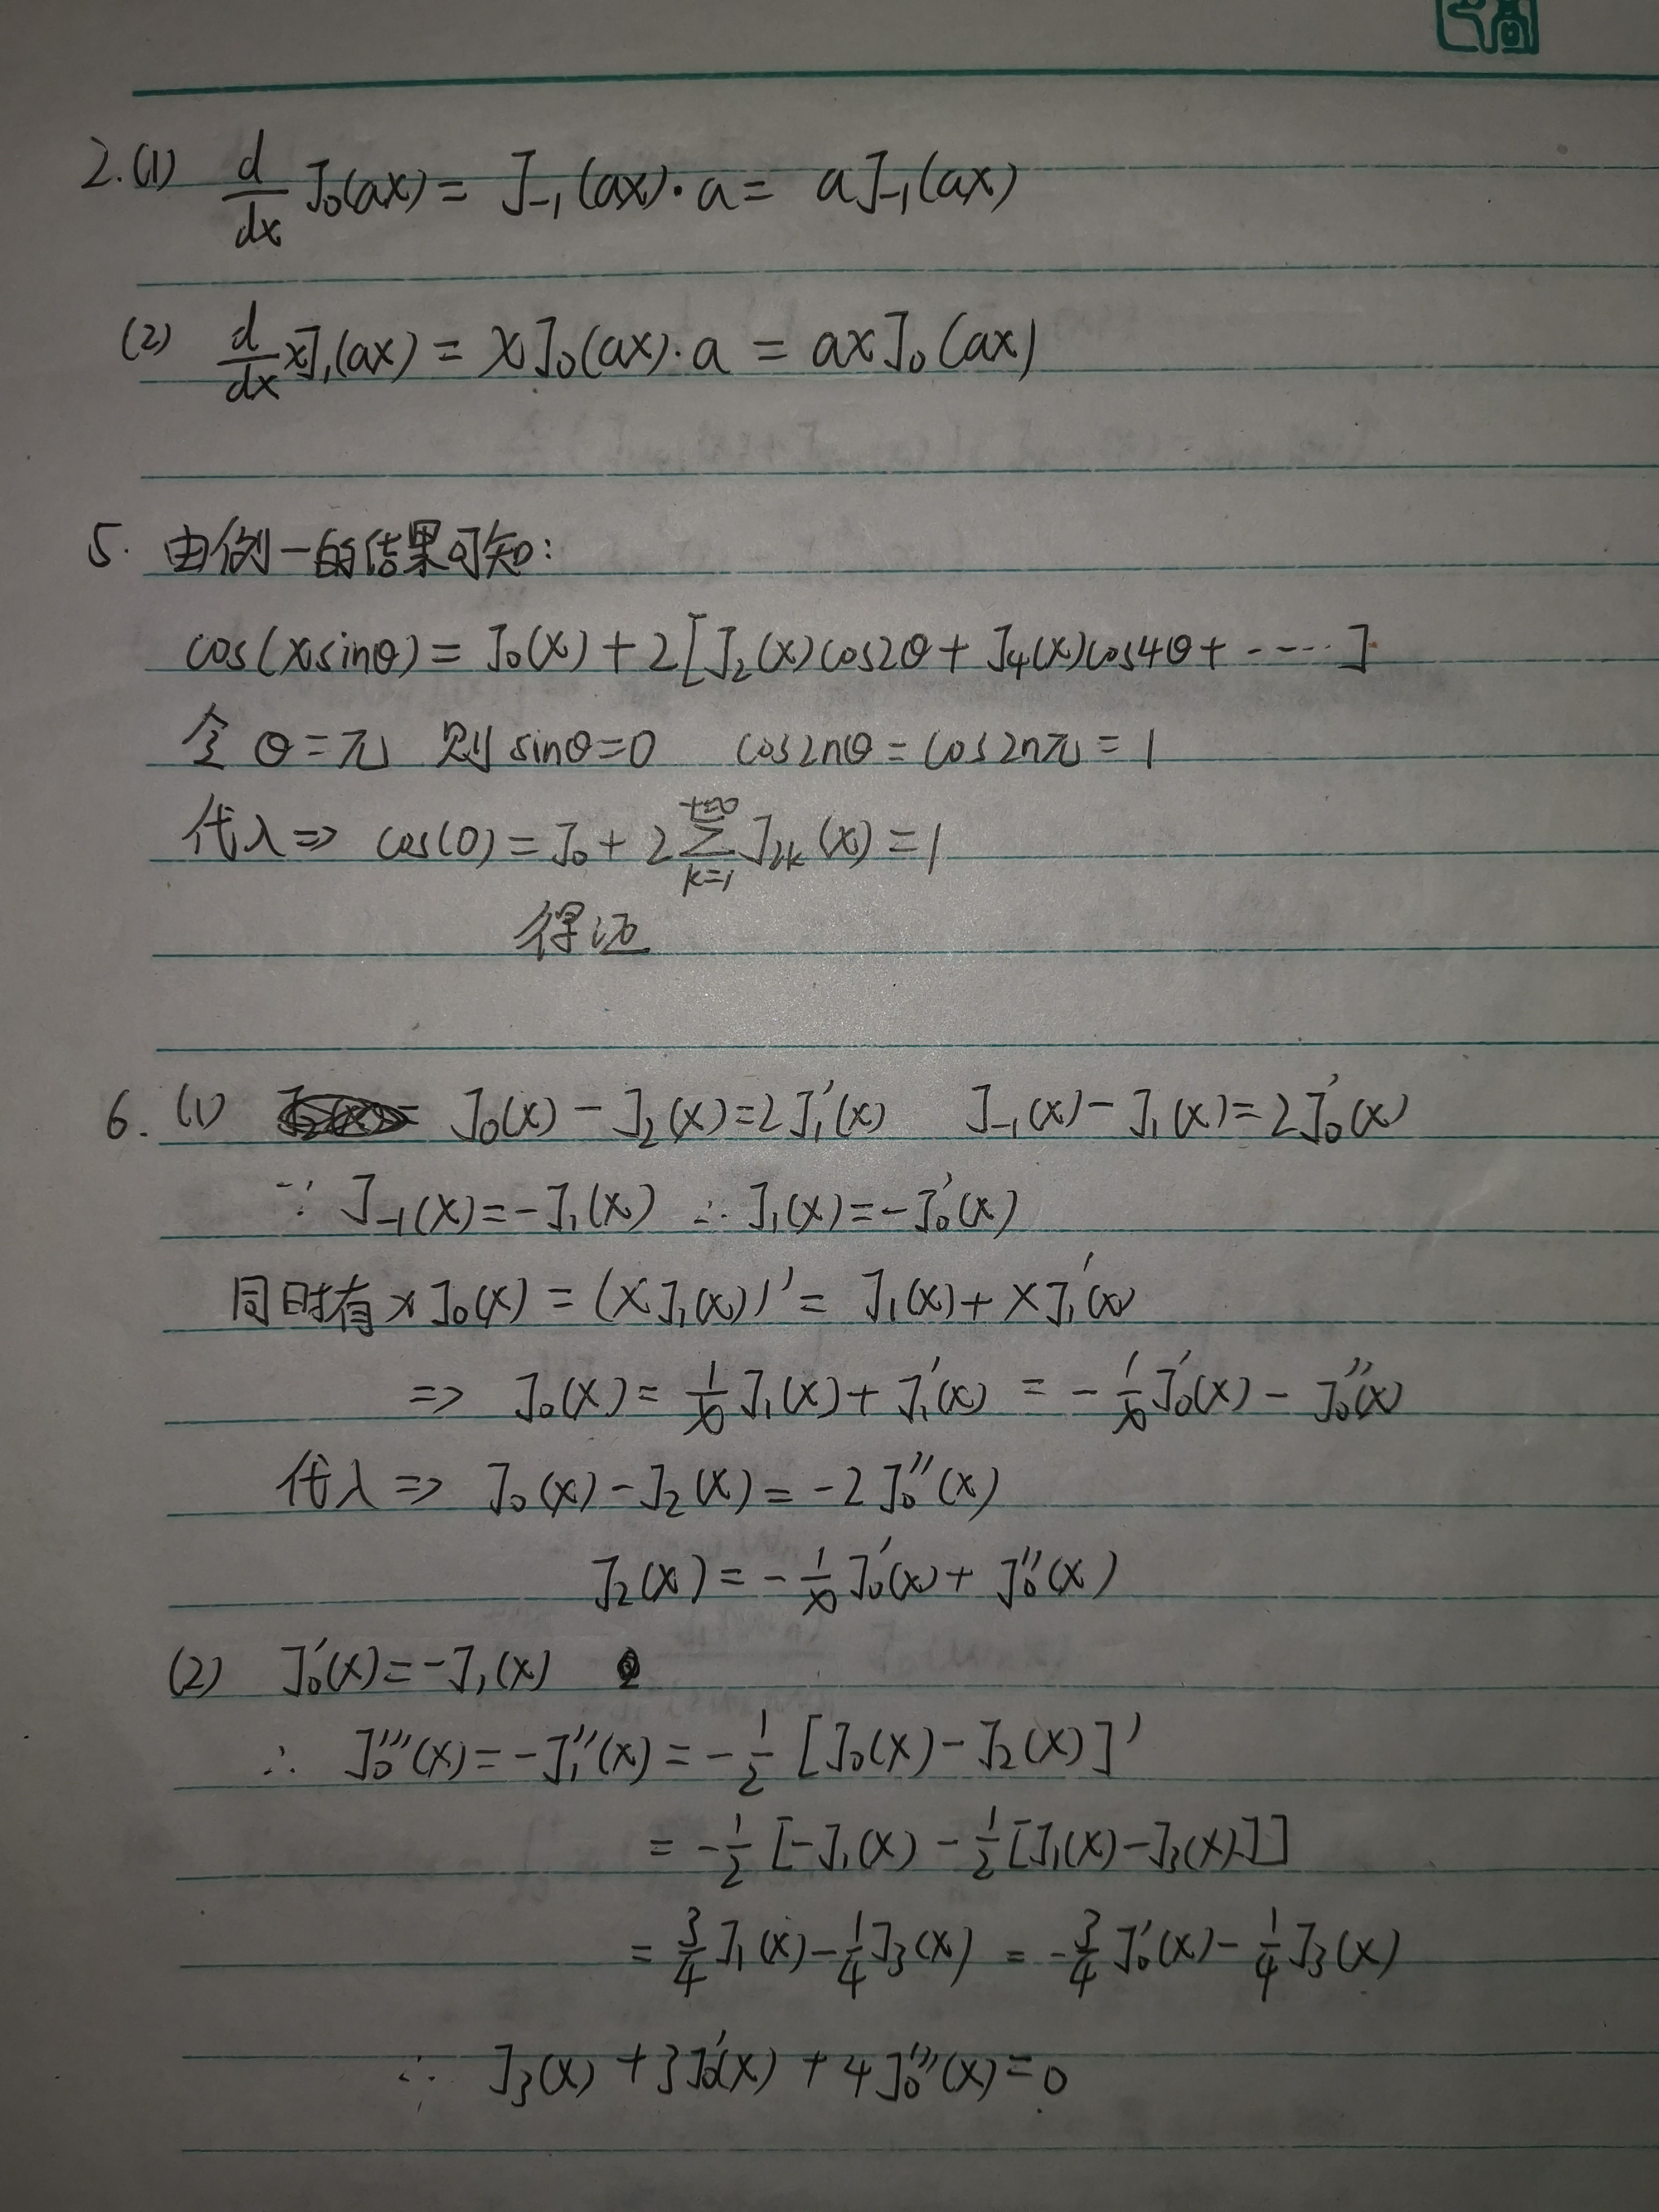 2.(1) d/dx J₀(ax) = J₋₁(ax)·a = aJ₋₁(ax)
(2) d/dx xJ₁(ax) = xJ₀(ax)·a = axJ₀(ax)
5. 由例一的结果可知:
cos(xsinθ) = J₀(x) + 2[J₂(x)cos2θ + J₄(x)cos4θ + ······]
令 θ=π 则 sinθ=0 cos2nθ = cos2nπ = 1
代入 ⇒ cos(0) = J₀ + 2∑_{k=1}^{+∞} J₂ₖ(x) = 1
得证
6. (1) J₀(x) − J₂(x) = 2J₁′(x) J₋₁(x) − J₁(x) = 2J₀′(x)
∵ J₋₁(x) = −J₁(x) ∴ J₁(x) = −J₀′(x)
同时有 xJ₀(x) = (xJ₁(x))′ = J₁(x) + xJ₁′(x)
⇒ J₀(x) = 1/x J₁(x) + J₁′(x) = −1/x J₀′(x) − J₀″(x)
代入 ⇒ J₀(x) − J₂(x) = −2J₀″(x)
J₂(x) = −1/x J₀′(x) + J₀″(x)
(2) J₀′(x) = −J₁(x)
∴ J₀‴(x) = −J₁″(x) = −1/2 [J₀(x) − J₂(x)]′
= −1/2 [−J₁(x) − 1/2[J₁(x) − J₃(x)]]
= 3/4 J₁(x) − 1/4 J₃(x) = −3/4 J₀′(x) − 1/4 J₃(x)
∴ J₃(x) + 3J₀′(x) + 4J₀‴(x) = 0